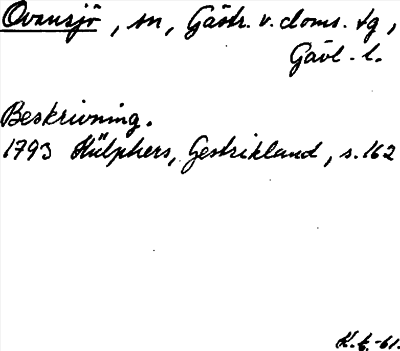 Ovansjö, sn, Gästr. v. doms. tg,
Gävl. l.
Beskrivning.
1793 Hülphers, Gestrikland, s. 162
K.t.-61.